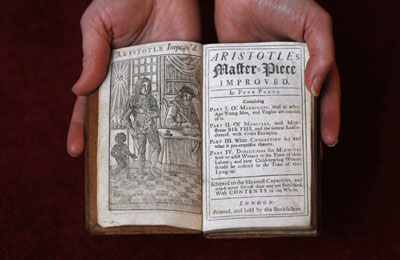 ARISTOTLE Improv'd.
ARISTOTLE's
Master-Piece
IMPROVED.
In Four Parts,
Containing
PART I. Of MARRIAGE, and at what
Age Young Men, and Virgins are capable
of it.
PART II. Of MONSTERS, and Mon-
strous BIRTHS, and the several
thereof, with
PART III. What CONCEPTION is; and
what is pre-requisite thereto.
PART IV. DIRECTIONS for MIDWIVES
how to assist Women in the Time of their
Labour; and how Child-bearing Women
should be ordered in the Time of their
Lying-in.
Adapted to the Meanest Capacities, and
much more Correct than any yet Publish'd.
With CONTENTS to the Whole.
LONDON:
Printed, and sold by the Booksellers.